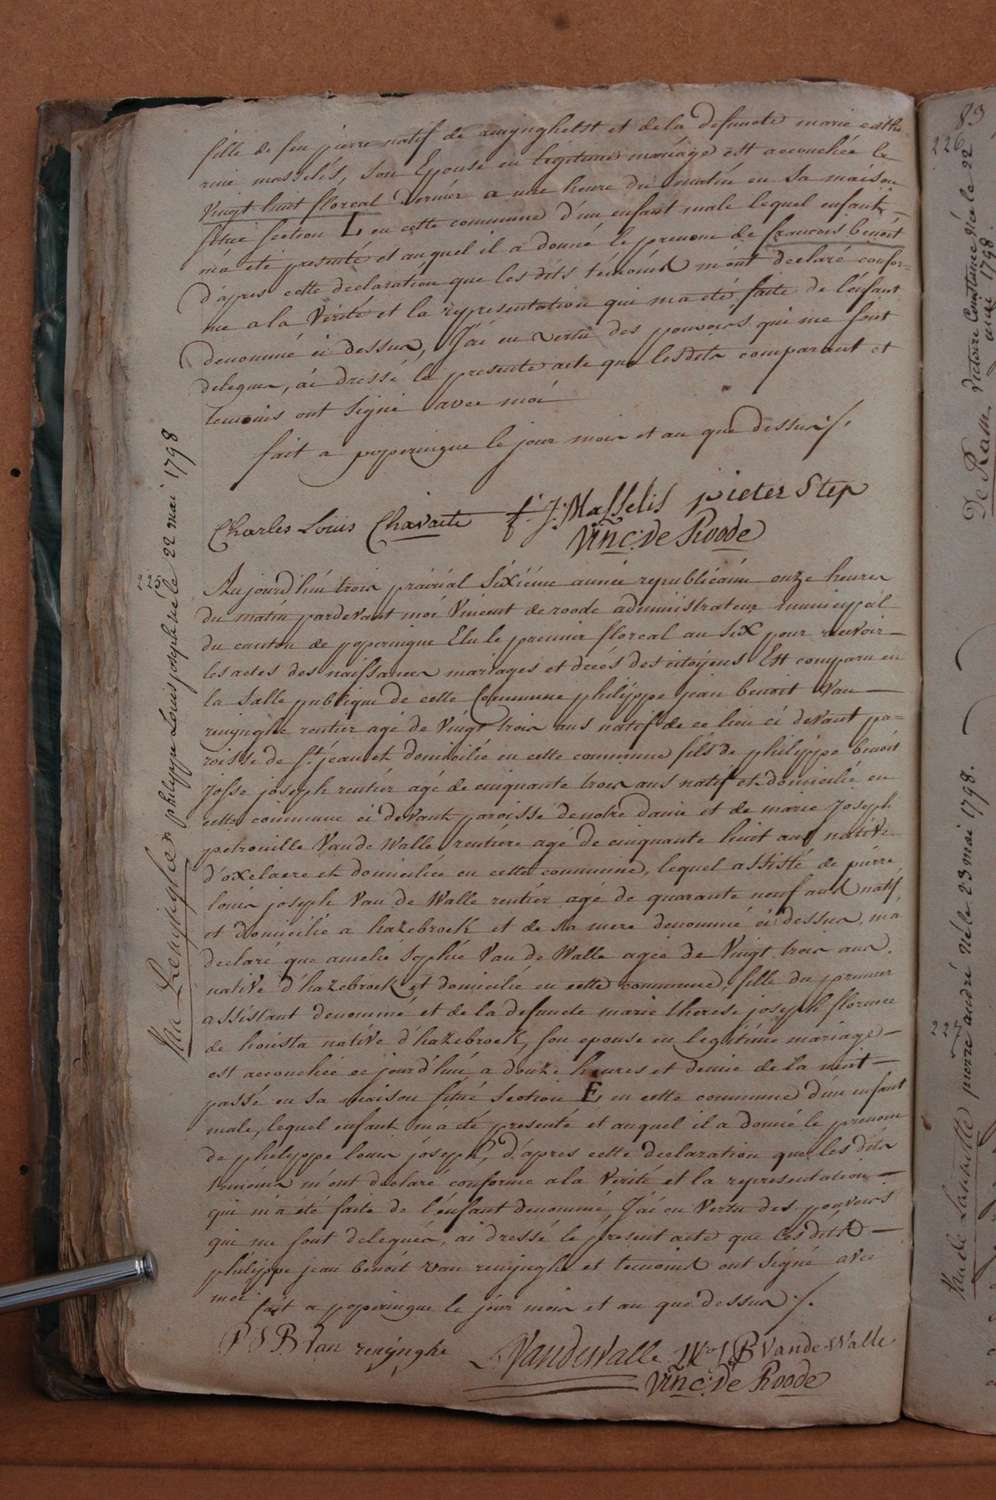 fille de feu pierre natif de reninghelst et de la defuncte marie cathe
rine masselis, son Epouse en legitime mariage est accouchée le
Vingt huit floreal dernier a une heure du matin en sa maison
sitüé section L en cette commune d'un enfant male lequel enfant
m'a été presenté et auquel il a donné le prenom de francois benoit
d'apres cette declaration que les dits témoins m'ont declaré confor-
me a la Verité et la representation qui ma été faite de l'enfant
denommé ci dessus, J'ai en vertu des pouvoirs qui me sont
delegués, ai dressé le present acte que lesdits comparant et
temoins ont signé avec moi
fait a poperingue le jour mois et an que dessus ./.
Charles Louis Chavaete f. J: Masselis pieter Step
Vinc: De Roode
225.
Van Renijnghe philippe Louis joseph né le 22 mai 1798
Aujourd'hui trois prairial sixième année republicaine onze heures
du matin pardevant moi Vincent de roode administrateur municipal
du canton de poperingue Elu le premier floreal an six pour recevoir
les actes des naissances mariages et décés des citoyens Est comparu en
la salle publique de cette Commune philippe jean benoit Van
renijnghe rentier agé de Vingt trois ans natif de ce lieu ci devant pa-
roisse de St jean et domicilié en cette commune fils de philippe benoit
josse joseph rentier agé de cinquante trois ans natif et domicilié en
cette commune ci devant paroisse de notre dame et de marie Joseph
petronille Van de Walle rentiere agé de cinquante huit ans native
d'oxelaere et domiciliée en cette commune, lequel assisté de pierre
louis joseph Van de Walle rentier agé de quarante neuf ans natif
et domicilié a hazebroek et de sa mere denommé ci dessus, m'a
declaré que amelie Sophie Van de Walle agée de Vingt trois ans,
native d'hazebroek et domicilié en cette commune, fille du premier
assistant denommé et de la defuncte marie therese joseph florence
de housta native d'hazebroek, son epouse en legitime mariage
est accouchée ce jourd'hui a douze heures et demie de la nuit
passé en sa maison sitüé Section E, en cette commune d'un enfant
male, lequel enfant m'a été presenté et auquel il a donné le prenom
de philippe louis joseph, d'apres cette declaration que les dits
temoins m'ont declaré conforme a la Verité et la representation
qui m'a été faite de l'enfant denommé, J'ai en Vertu des pouvoirs
qui me sont delegués, ai dressé le present acte que Lesdits
philippe jean benoit van renijnghe et temoins ont signé avec
moi
fait a poperingue le jour mois et an que dessus ./.
P J B Van renijnghe Vandewalle Van de Walle
Vinc: De Roode
83
226
De Ram, Victoire Constance née le 22
mai 1798.
227
pierre andré né le 23 mai 1798.